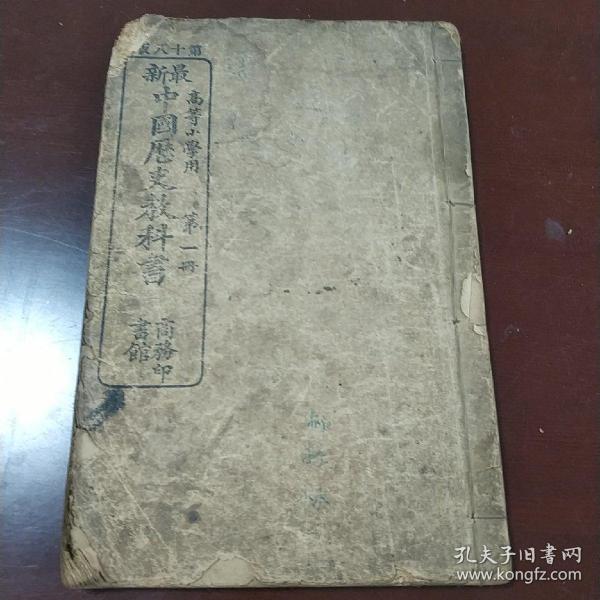 第十八版
最新中國歷史教科書
高等小學用　第一冊
商務印書館
孔夫子旧書网
www.kongfz.com